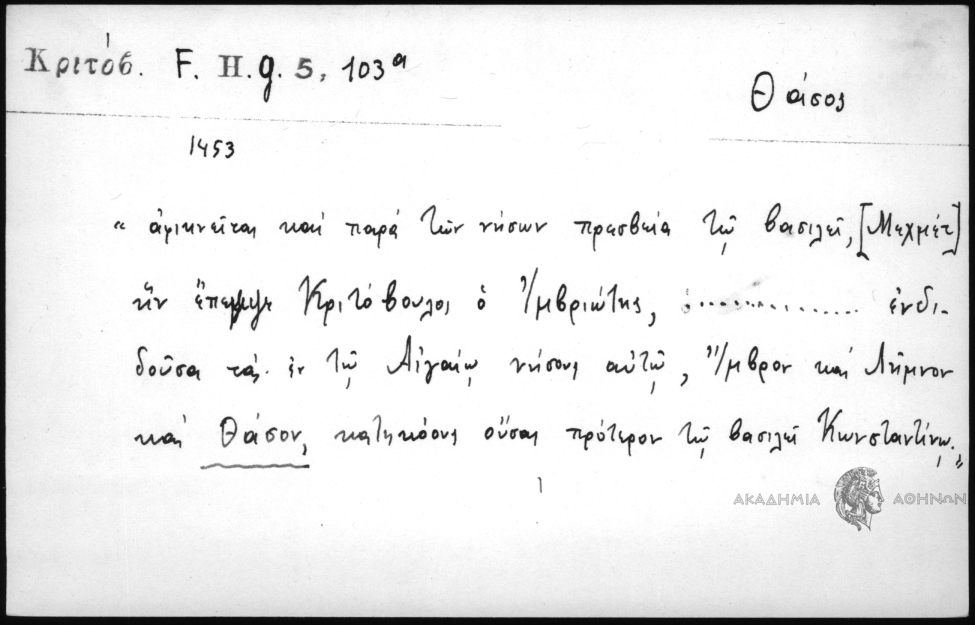 Κριτόβ. F. H. g. 5, 103ᵃ
Θάσος
1453
“ ἀφικνεῖται καὶ παρὰ τῶν νήσων πρεσβεία τῷ βασιλεῖ, [Μεχμέτ]
ἣν ἔπεμψε Κριτόβουλος ὁ Ἰμβριώτης, ................ ἐνδι-
δοῦσα τὰς ἐν τῷ Αἰγαίῳ νήσους αὐτῷ, Ἴμβρον καὶ Λῆμνον
καὶ Θάσον, κατηκόους οὔσας πρότερον τῷ βασιλεῖ Κωνσταντίνῳ.”
ΑΚΑΔΗΜΙΑ ΑΘΗΝΩΝ